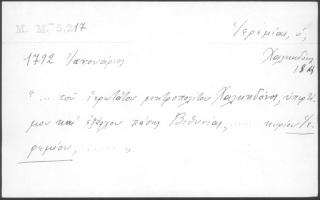 M. M. 5.217
Ἱερεμίας, ὁ,
1792 Ἰανουάριος
Χαλκηδόνος
".. τοῦ ἱερωτάτου μητροπολίτου Χαλκηδόνος, ὑπερτί
μου καὶ ἐξάρχου πάσης Βιθυνίας, ...... κυρίου Ἱε
ρεμίου, ........,